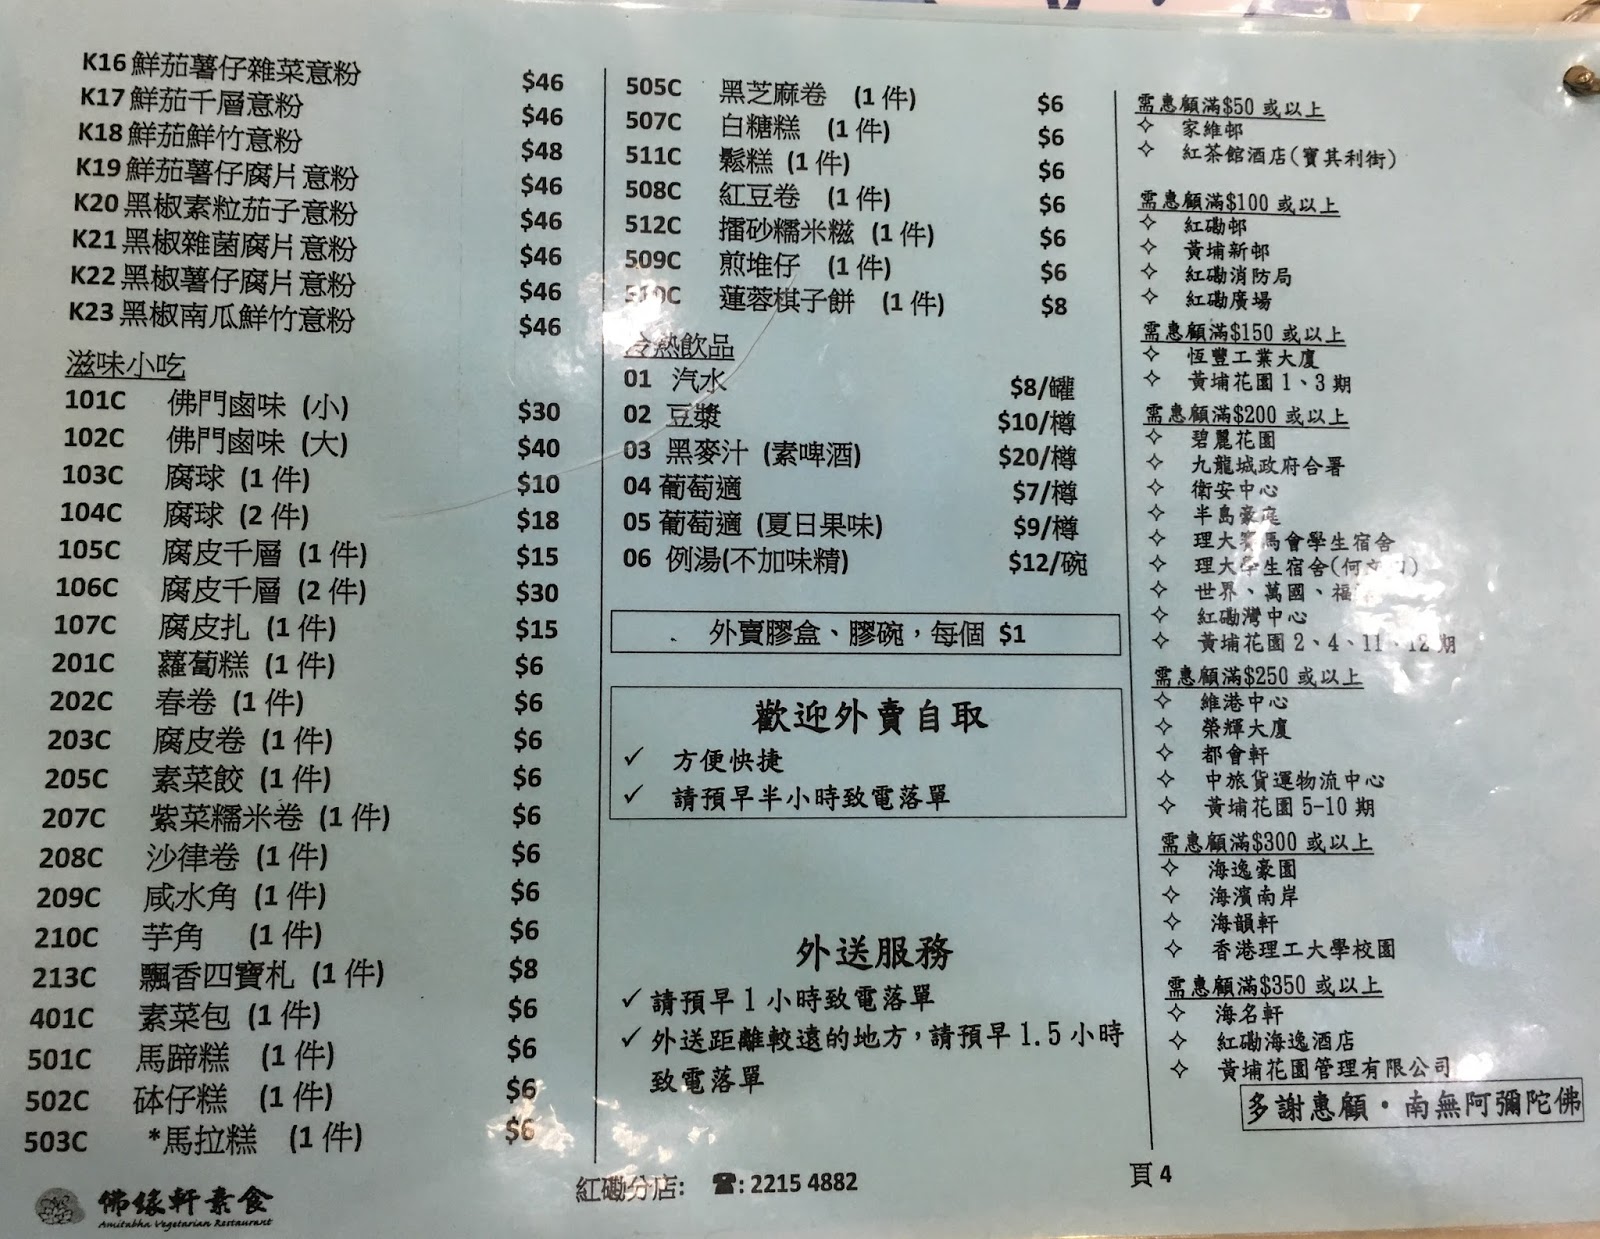 K16 鮮茄薯仔雜菜意粉 $46
K17 鮮茄千層意粉 $46
K18 鮮茄鮮竹意粉 $48
K19 鮮茄薯仔腐片意粉 $46
K20 黑椒素粒茄子意粉 $46
K21 黑椒雜菌腐片意粉 $46
K22 黑椒薯仔腐片意粉 $46
K23 黑椒南瓜鮮竹意粉 $46
滋味小吃
101C 佛門鹵味 (小) $30
102C 佛門鹵味 (大) $40
103C 腐球 (1 件) $10
104C 腐球 (2 件) $18
105C 腐皮千層 (1 件) $15
106C 腐皮千層 (2 件) $30
107C 腐皮扎 (1 件) $15
201C 蘿蔔糕 (1 件) $6
202C 春卷 (1 件) $6
203C 腐皮卷 (1 件) $6
205C 素菜餃 (1 件) $6
207C 紫菜糯米卷 (1 件) $6
208C 沙律卷 (1 件) $6
209C 咸水角 (1 件) $6
210C 芋角 (1 件) $6
213C 飄香四寶札 (1 件) $8
401C 素菜包 (1 件) $6
501C 馬蹄糕 (1 件) $6
502C 砵仔糕 (1 件) $6
503C *馬拉糕 (1 件) $6
505C 黑芝麻卷 (1 件) $6
507C 白糖糕 (1 件) $6
511C 鬆糕 (1 件) $6
508C 紅豆卷 (1 件) $6
512C 擂砂糯米糍 (1 件) $6
509C 煎堆仔 (1 件) $6
510C 蓮蓉棋子餅 (1 件) $8
冷熱飲品
01 汽水 $8/罐
02 豆漿 $10/樽
03 黑麥汁 (素啤酒) $20/樽
04 葡萄適 $7/樽
05 葡萄適 (夏日果味) $9/樽
06 例湯(不加味精) $12/碗
外賣膠盒、膠碗，每個 $1
歡迎外賣自取
✓ 方便快捷
✓ 請預早半小時致電落單
外送服務
✓ 請預早 1 小時致電落單
✓ 外送距離較遠的地方，請預早 1.5 小時
致電落單
需惠顧滿$50 或以上
✧ 家維邨
✧ 紅茶館酒店(寶其利街)
需惠顧滿$100 或以上
✧ 紅磡邨
✧ 黃埔新邨
✧ 紅磡消防局
✧ 紅磡廣場
需惠顧滿$150 或以上
✧ 恆豐工業大廈
✧ 黃埔花園 1、3 期
需惠顧滿$200 或以上
✧ 碧麗花園
✧ 九龍城政府合署
✧ 衛安中心
✧ 半島豪庭
✧ 理大賽馬會學生宿舍
✧ 理大學生宿舍(何文田)
✧ 世界、萬國、福
✧ 紅磡灣中心
✧ 黃埔花園 2、4、11、12 期
需惠顧滿$250 或以上
✧ 維港中心
✧ 榮輝大廈
✧ 都會軒
✧ 中旅貨運物流中心
✧ 黃埔花園 5-10 期
需惠顧滿$300 或以上
✧ 海逸豪園
✧ 海濱南岸
✧ 海韻軒
✧ 香港理工大學校園
需惠顧滿$350 或以上
✧ 海名軒
✧ 紅磡海逸酒店
✧ 黃埔花園管理有限公司
多謝惠顧・南無阿彌陀佛
佛緣軒素食
Amitabha Vegetarian Restaurant
紅磡分店: ☎: 2215 4882
頁 4